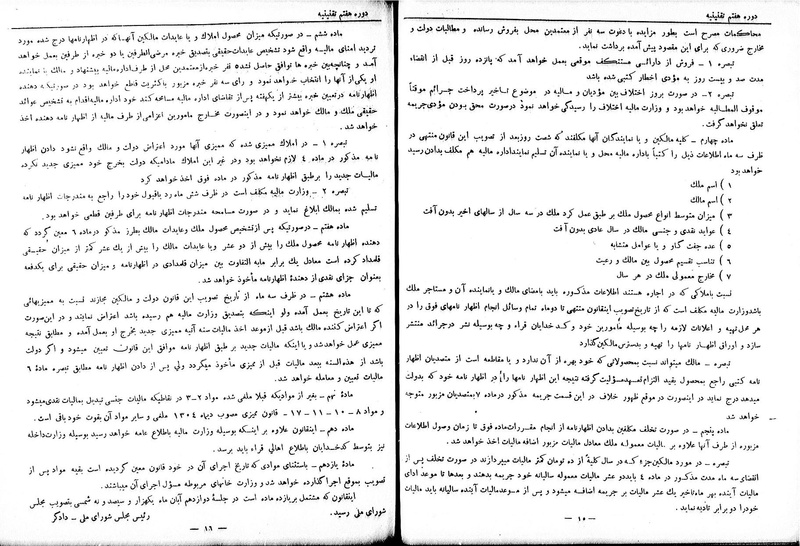 دوره هفتم تقنینیه
محاکمات مصرح است بطور مزایده با دعوت سه نفر از معتمدین محل بفروش رسانده و مطالبات دولت و
مخارج ضروری که برای این مقصود پیش آمده برداشت نماید.
تبصره ۱ - فروش از دارائی مستنکف موقعی بعمل خواهد آمد که پانزده روز قبل از انقضاء
مدت صد و بیست روز به مؤدی اخطار کتبی شده باشد
تبصره ۲- در صورت بروز اختلاف بین مؤدیان و مالیه در موضوع تأخیر پرداخت جرائم موقتاً
موقوف المطالبه خواهد بود و وزارت مالیه اختلاف را رسیدگی خواهد نمود درصورت محق بودن مؤدی جریمه
تعلق نخواهد گرفت.
ماده چهارم - کلیه مالکین و یا نمایندگان آنها مکلفند که شصت روز بعد از تصویب این قانون منتهی در
ظرف سه ماه اطلاعات ذیل را کتباً باداره مالیه محل و یا نماینده آن تسلیم نمایند اداره مالیه هم مکلف بدادن رسید
خواهد بود
۱ ) اسم ملك
۲ ) اسم مالك
۳ ) میزان متوسط انواع محصول ملك بر طبق عمل کرد ملك در سه سال از سالهای اخیر بدون آفت
۴ ) عواید نقدی و جنسی مالك در سال عادی بدون آفت
۵ ) عده جفت گاو و یا عوامل متشابه
۶ ) تناسب تقسیم محصول بین مالك و رعیت
۷ ) مخارج معمولی ملك در هر سال
نسبت باملاکی که در اجاره هستند اطلاعات مذکوره باید بامضای مالك و یا نماینده آن و مستاجر ملك
باشد وزارت مالیه مکلف است که از تاریخ تصویب اینقانون منتهی تا دو ماه تمام وسائل انجام اظهار نامهای فوق را در
هر محل تهیه و اعلانات لازمه را چه بوسیله مأمورین خود و کدخدایان قراء و چه بوسیله نشر در جرائد منتشر
سازد و اوراق اظهار نامها را تهیه و بدسترس مالکین گذارد
تبصره - مالك میتواند نسبت بمحصولاتی که خود بهره از آن ندارد و یا مقاطعه است از متصدیان اظهار
نامه کتبی راجع بمحصول بقید التزام تعهد مسؤلیت گرفته نتیجه این اظهار نامها را در اظهار نامه خود که بدولت
میدهد درج نماید در اینصورت در موقع ظهور خلاف در این قسمت جریمه مذکور در ماده ۷ بمتصدیان مزبور متوجه
خواهد شد
ماده پنجم - در صورت تخلف مکلفین بدادن اظهارنامه از انجام مقررات ماده فوق تا زمان وصول اطلاعات
مزبوره از طرف آنها علاوه بر مالیات معموله ملك معادل مالیات مزبور اضافه مالیات اخذ خواهد شد.
تبصره - در مورد مالکین جزء که در سال کلیة از ده تومان کمتر مالیات میپردازند در صورت تخلف پس از
انقضای سه ماه مدت مذکور در ماده ۴ باید دو عشر مالیات معموله سالیانه خود جریمه بدهند و بعدها تا موعد ادای
مالیات آینده بهر ماه تاخیر یك عشر مالیات بر جریمه اضافه میشود و پس از موعد مالیات آینده سالیانه باید مالیات
خود را دو برابر تادیه نماید.
- ۱۵ -
دوره هفتم تقنینیه
ماده ششم - در صورتیکه میزان محصول املاك و یا عایدات مالکین آنها که در اظهارنامها درج شده مورد
تردید امنای مالیه واقع شود تشخیص عایدات حقیقی بتصدیق خبره مرضی الطرفین یا دو خبره از طرفین بعمل خواهد
آمد و چنانچه بین خبره ها توافق حاصل نشد نفر خبره از معتمدین محل از طرف اداره مالیه پیشنهاد و مالك یا نماینده
او یکی از آنها را انتخاب خواهد نمود و رای سه نفر خبره مزبور باکثریت قطع خواهد بود در صورتیکه دهنده
اظهارنامه در تعیین خبره بیشتر از یکهفته پس از تقاضای اداره مالیه مسامحه کند خود اداره مالیه اقدام به تشخیص عوائد
حقیقی ملك و مالك خواهد نمود و در اینصورت مخارج مامورین اعزامی از طرف مالیه از اظهار نامه دهنده اخذ
خواهد شد .
تبصره ۱ - در املاك ممیزی شده که ممیزی آنها مورد اعتراض دولت و مالك واقع نشود دادن اظهار
نامه مذکور در ماده ۴ لازم نخواهد بود و در غیر این املاك مادامیکه دولت بخرج خود ممیزی جدید نکرده
مالیات جدید را بر طبق اظهار نامه مذکور در ماده فوق اخذ خواهد کرد
تبصره ۲ - وزارت مالیه مکلف است در ظرف شش ماه رد یا قبول خود را راجع به مندرجات اظهار نامه
تسلیم شده بمالك ابلاغ نماید و در صورت مسامحه مندرجات اظهار نامه برای طرفین قطعی خواهد بود.
ماده هفتم - در صورتیکه پس از تشخیص محصول ملك و عایدات مالك بطرز مذکور در ماده ۶ معین گردد که
دهنده اظهار نامه محصول ملك را بیش از دو عشر و یا عایدات مالك را بیش از یك عشر کمتر از میزان حقیقی
قلمداد کرده است معادل یك برابر مابه التفاوت بین میزان قلمدادی در اظهارنامه و میزان حقیقی برای یکدفعه
بعنوان جزای نقدی از دهنده اظهارنامه مأخوذ خواهد شد.
ماده هشتم - در ظرف سه ماه از تاریخ تصویب این قانون دولت و مالکین مجازند نسبت به ممیزیهائی
که تا این تاریخ بعمل آمده ولو اینکه بتصدیق وزارت مالیه هم رسیده باشد اعتراض نمایند و در این صورت
اگر اعتراض کننده مالك باشد قبل از موعد اخذ مالیات سنه آتیه ممیزی جدید بخرج او بعمل آمده و مطابق نتیجه
ممیزی عمل خواهد شد و یا اینکه مالیات جدید بر طبق اظهار نامه موافق این قانون تعیین میشود و اگر دولت
باشد از هذه السنه ببعد مالیات قبل از ممیزی مأخوذ میگردد ولی پس از دادن اظهار نامه مطابق تبصره ماده ۶
مالیات تعیین و معامله خواهد شد.
مادۀ نهم - بغیر از موادیکه قبلا ملغی شده مواد ۲-۳ در نقاطیکه مالیات جنسی تبدیل بمالیات نقدی میشود
و مواد ۸ - ۱۰ - ۱۱ - ۱۷ - قانون ممیزی مصوب دیماه ۱۳۰۴ ملغی و سایر مواد آن بقوت خود باقی است.
ماده دهم - اینقانون علاوه بر اینکه بوسیله وزارت مالیه باطلاع عامه خواهد رسید بوسیله وزارت داخله
نیز بتوسط کدخدایان باطلاع اهالی قراء باید برسد.
ماده یازدهم - باستثنای موادی که تاریخ اجرای آن در خود قانون معین گردیده است بقیه مواد پس از
تصویب بموقع اجرا گذارده خواهد شد و وزارت خانهای مربوطه مسؤل اجرای آن میباشند.
اینقانون که مشتمل بر یازده ماده است در جلسۀ دوازدهم آبان ماه یکهزار و سیصد و نه شمسی بتصویب مجلس
شورای ملی رسید.
رئیس مجلس شورای ملی - دادگر
- ۱۶ -